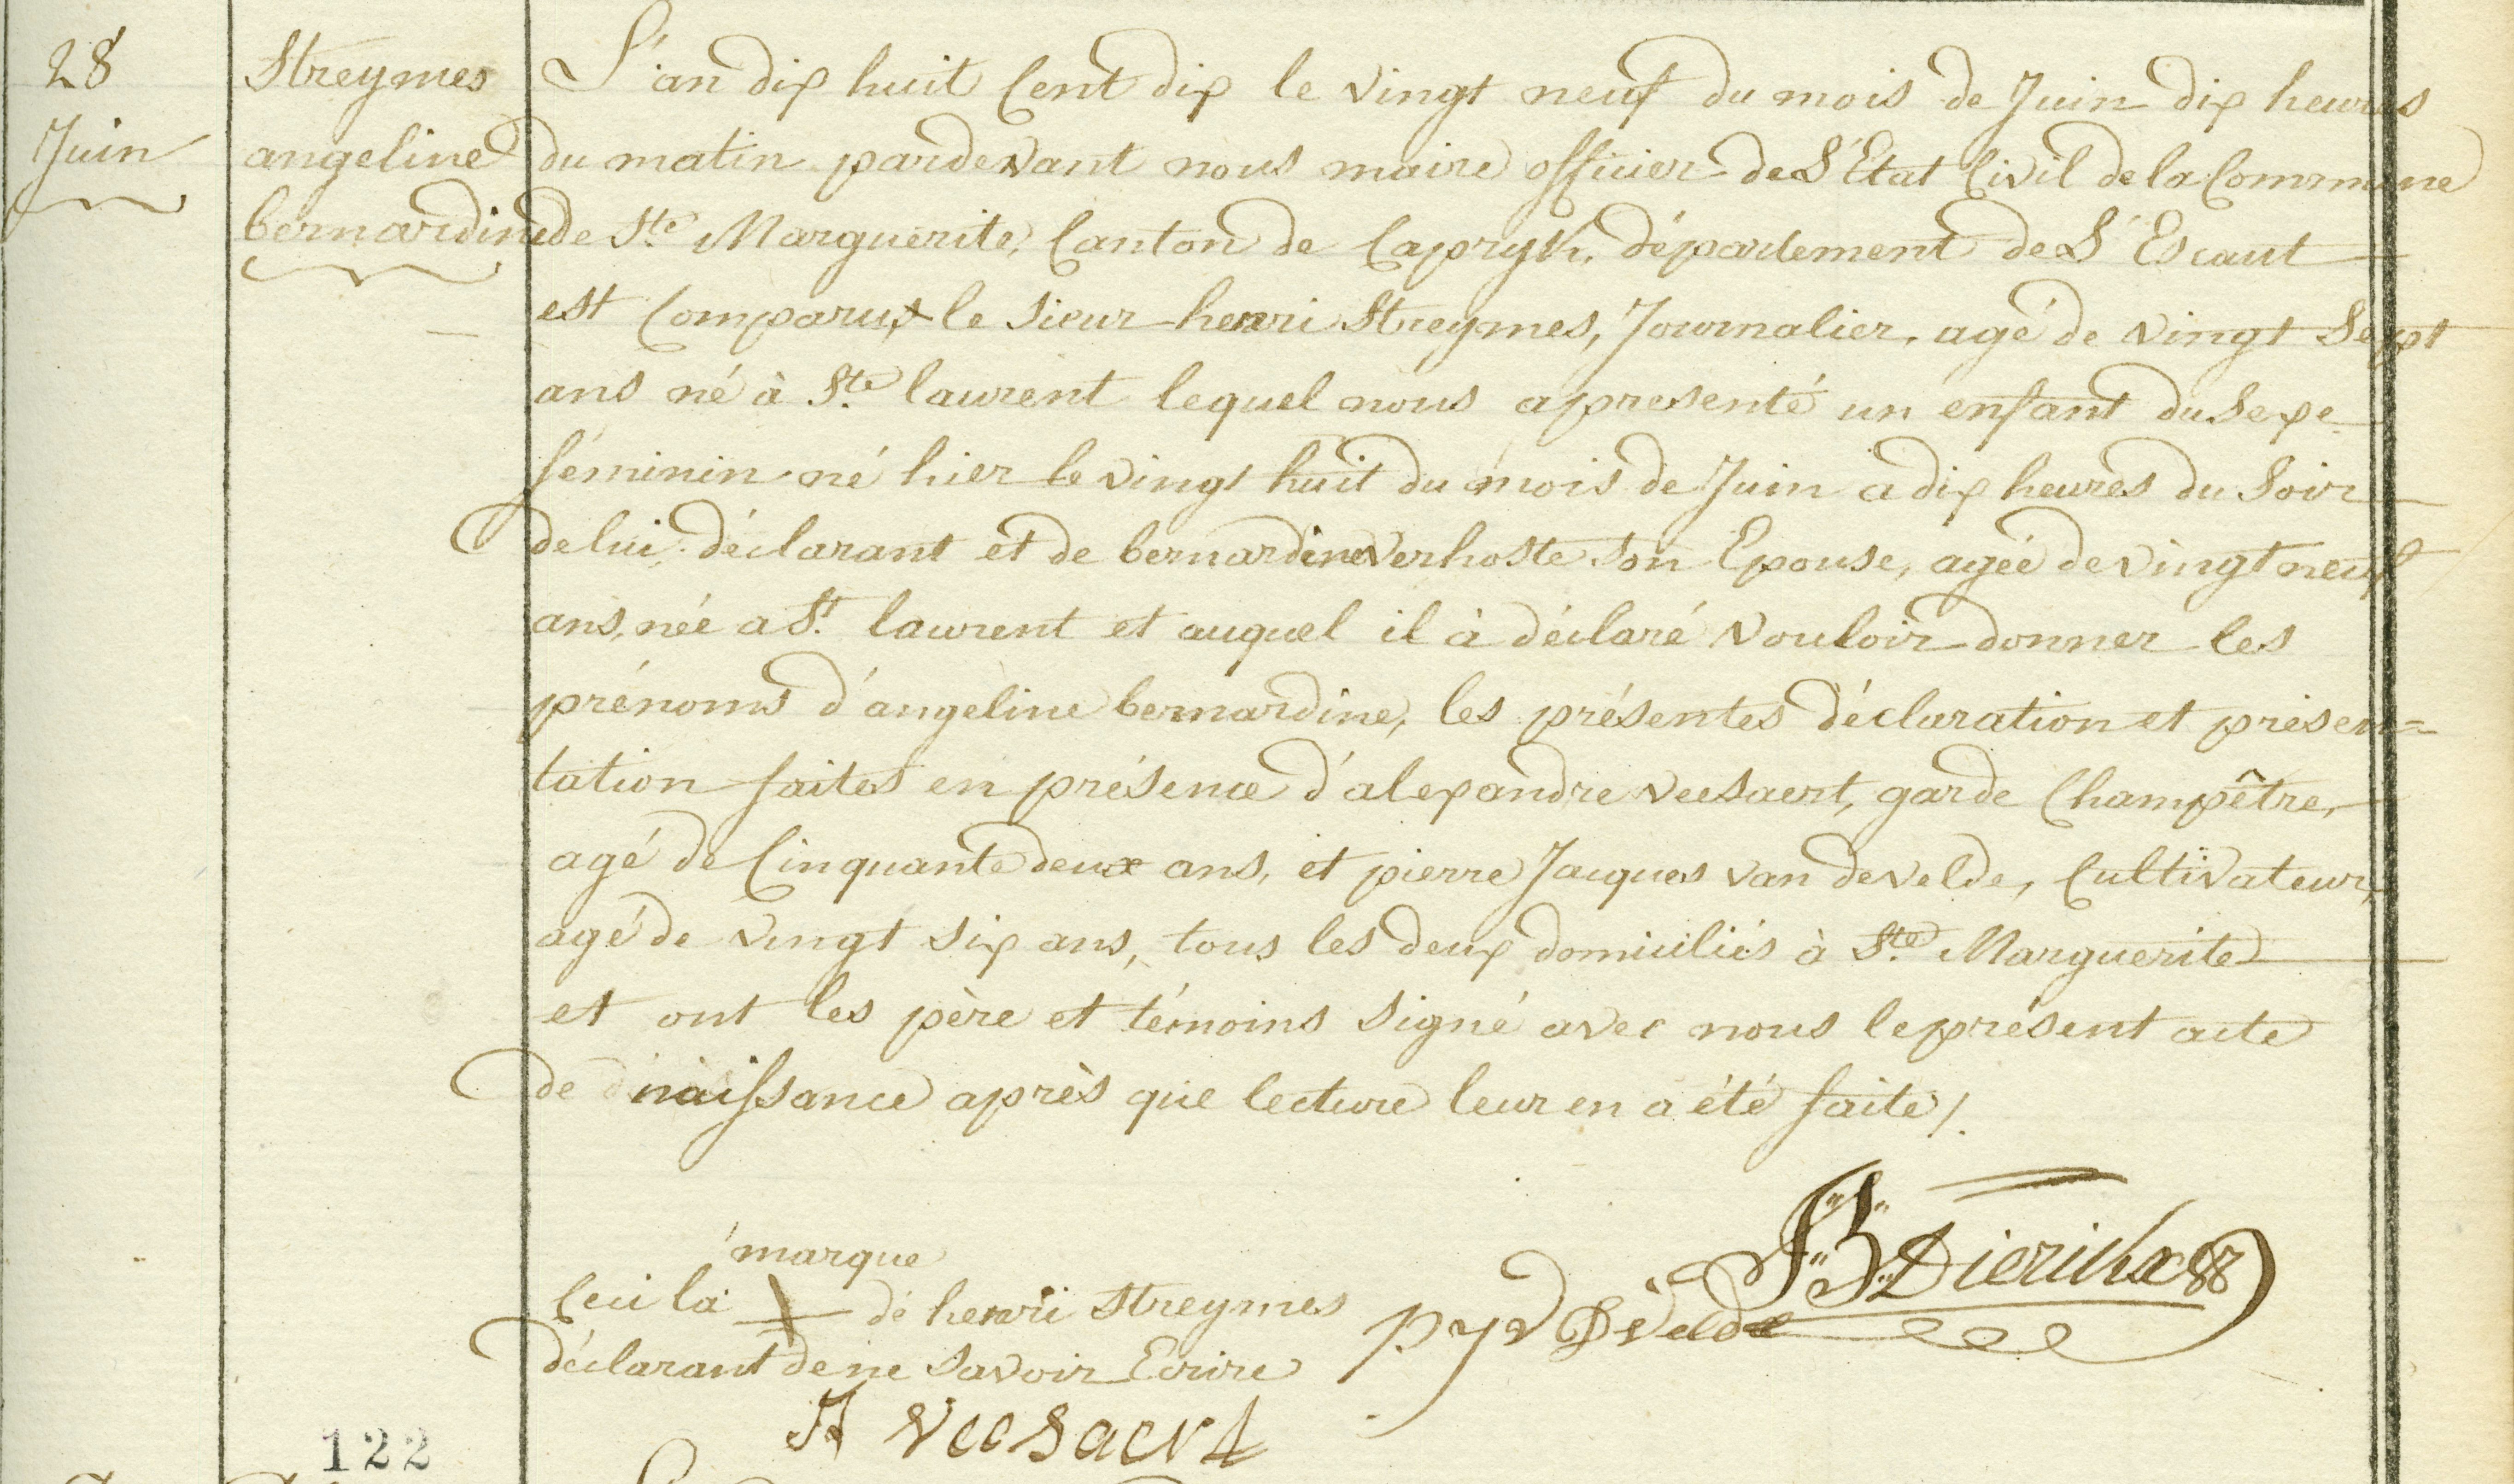 28
Juin
Streymes
angeline
bernardine
L'an dix huit Cent dix le vingt neuf du mois de Juin dix heures
du matin pardevant nous maire officier de L'Etat Civil de la Commune
de Ste Marguerite, Canton de Capryk, département de L'Escaut
est Comparu le sieur henri Streymes, Journalier, agé de vingt Sept
ans né à Ste laurent lequel nous apresenté un enfant du Sexe
féminin né hier le vingt huit du mois de Juin a dix heures du Soir
de lui déclarant et de bernardine verhoste son Epouse, agée de vingt neuf
ans, née a St laurent et auquel il à déclaré vouloir donner les
prénoms d'angeline bernardine, les présentes déclaration et présen=
tation faites en présence d'alexandre veesaert, garde Champêtre,
agé de Cinquante deux ans, et pierre Jacques van develde, Cultivateur,
agé de vingt six ans, tous les deux domiciliés à Ste Marguerite
et ont les père et témoins signé avec nous le présent acte
de naissance après que lecture leur en a été faite /.
marque
Ceci la + de henri Streymes
déclarant de ne savoir Ecrire
p j v D velde
JB Dierickx
A veesaert
122